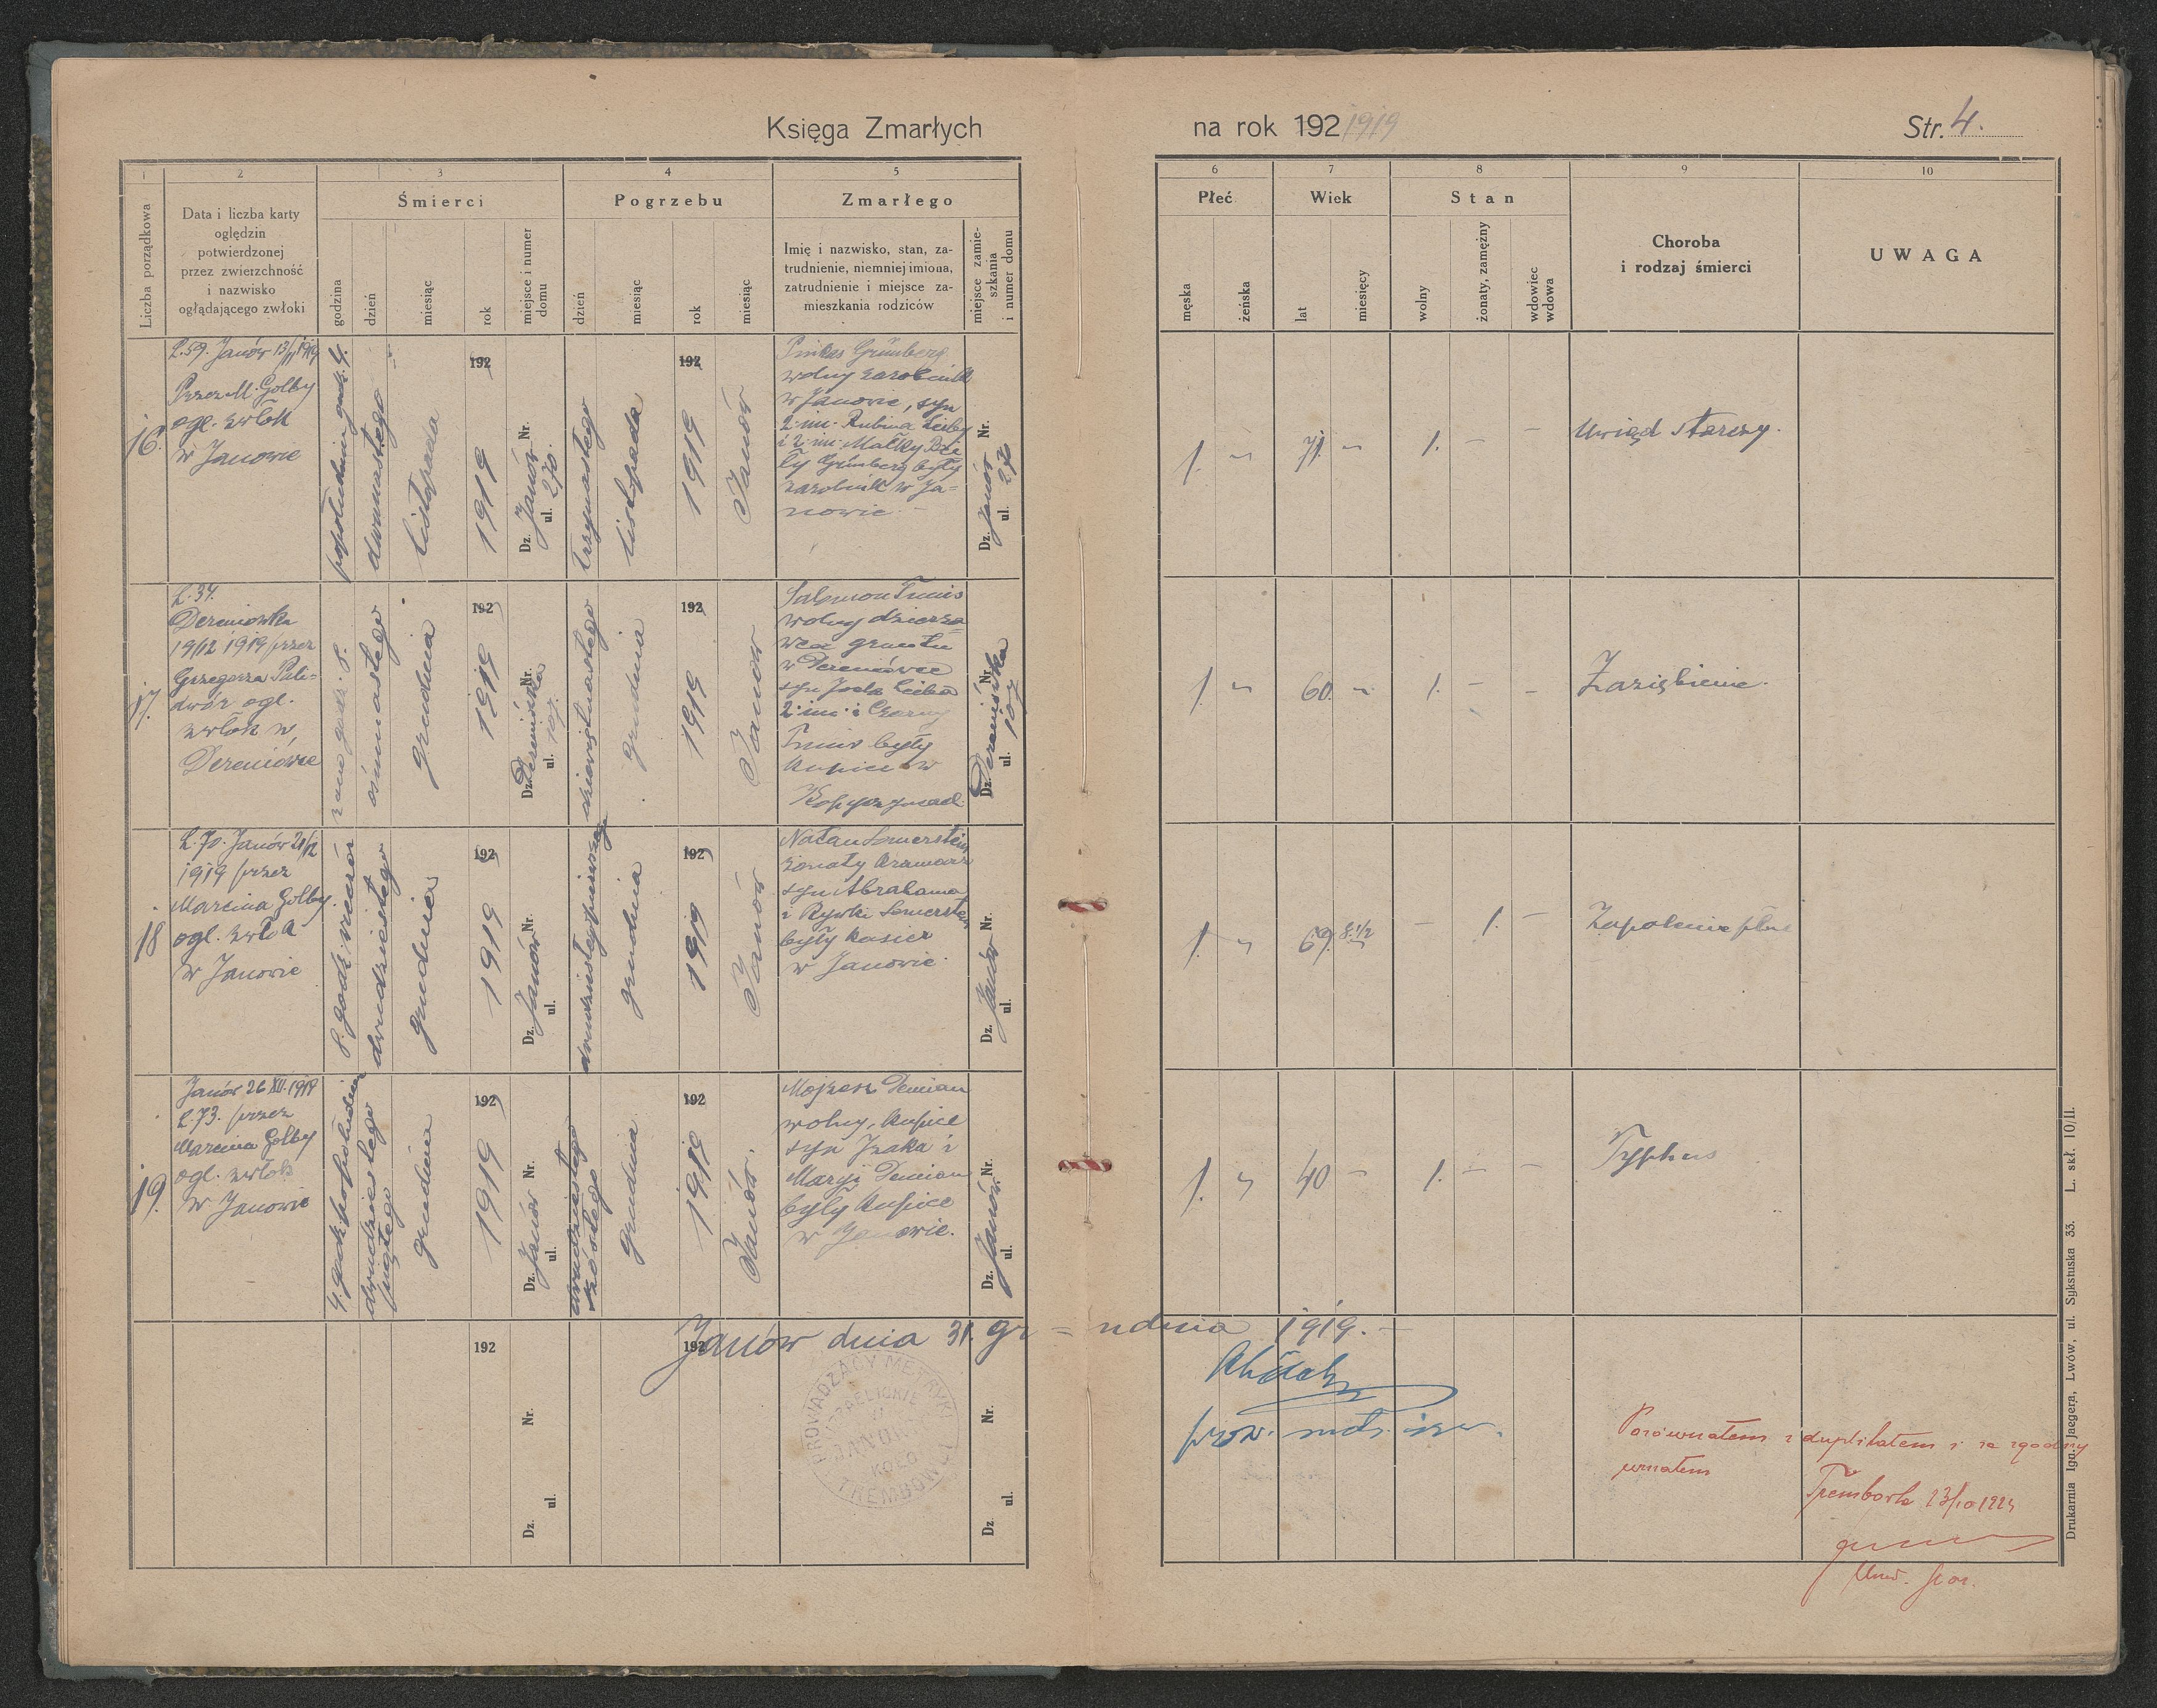 Księga Zmarłych
na rok 192 1919
Str. 4.
1
2
3
4
5
6
7
8
9
10
Liczba porządkowa
Data i liczba karty
oględzin
potwierdzonej
przez zwierzchność
i nazwisko
oglądającego zwłoki
Śmierci
godzina
dzień
miesiąc
rok
miejsce i numer
domu
Pogrzebu
dzień
miesiąc
rok
miejsce
Zmarłego
Imię i nazwisko, stan, za-
trudnienie, niemniej imiona,
zatrudnienie i miejsce za-
mieszkania rodziców
miejsce zamie-
szkania
i numer domu
Płeć
męska
żeńska
Wiek
lat
miesięcy
Stan
wolny
żonaty, zamężny
wdowiec
wdowa
Choroba
i rodzaj śmierci
UWAGA
16.
L.59. Janów 13/11 1919
Przez M. Golby
ogl. zwłok
w Janowie
popołudniu godz. 4.
dwunastego
listopada
192
1919
Dz. Janów Nr.
ul. 270.
trzynastego
listopada
192
1919
Janów
Pinkas Grünberg
wolny zarobnik
w Janowie, syn
2·im· Rubina Leiby
i 2·im· Małky
Grünberg były
zarobnik w Ja=
nowie.
Dz. Janów Nr.
ul. 270
1. " 71. " 1. - -
Uwiąd starczy.
17.
L.34.
Dereniówka
19/12 1919 przez
Grzegorza Pali=
dwór ogl.
zwłok w
Dereniówce
rano godz. 8.
ósmnastego
grudnia
192
1919
Dz. Dereniówka Nr.
ul. 107.
dziewiętnastego
grudnia
192
1919
Janów
Salomon
wolny dzierża=
wca gruntu
w Dereniówce
syn Josla Leiba
2·im· i Czarny
były
kupiec w
Dz. Dereniówka Nr.
ul. 107
1. " 60. " 1. - -
Zaziębienie.
18
L.70. Janów 21/12
1919 przez
Marcina Golby.
ogl. zwłok
w Janowie
8. godz. wieczór
dwudziestego
grudnia
192
1919
Dz. Janów Nr.
ul.
dwudziestegopierwszego
grudnia
192
1919
Janów
Natan Somerstein
żonaty kramarz
syn Abrahama
i Rywki Somerstein
były kasier
w Janowie.
Dz. Janów Nr.
ul.
1. " 69. 8 1/2 - 1. -
Zapalenie płuc
19.
Janów 26 XII. 1919
L.73. przez
Marcina Golby
ogl. zwłok
w Janowie
4. godz. popołudniu
dwudziestego
piątego
grudnia
192
1919
Dz. Janów Nr.
ul.
dwudziestego
szóstego
grudnia
192
1919
Janów.
Mojżesz Demian
wolny, kupiec
syn Izaka i
Maryi Demian
były kupiec
w Janowie.
Dz. Janów Nr.
ul.
1. " 40 - 1. - -
Typhus
192
Dz. ul. Nr.
192
Dz. ul. Nr.
Janów dnia 31. gr = udnia 1919. -
PROWADZĄCY METRYKI
IZRAELICKIE
JANOW
KOŁO
TREMBOWLI
prow. metr. izr.
Porównałem z duplikatem i za zgodny
uznałem
Trembowla 23/10 1924
Drukarnia Ign. Jaegera, Lwów, ul. Sykstuska 33. L. skł. 10/II.